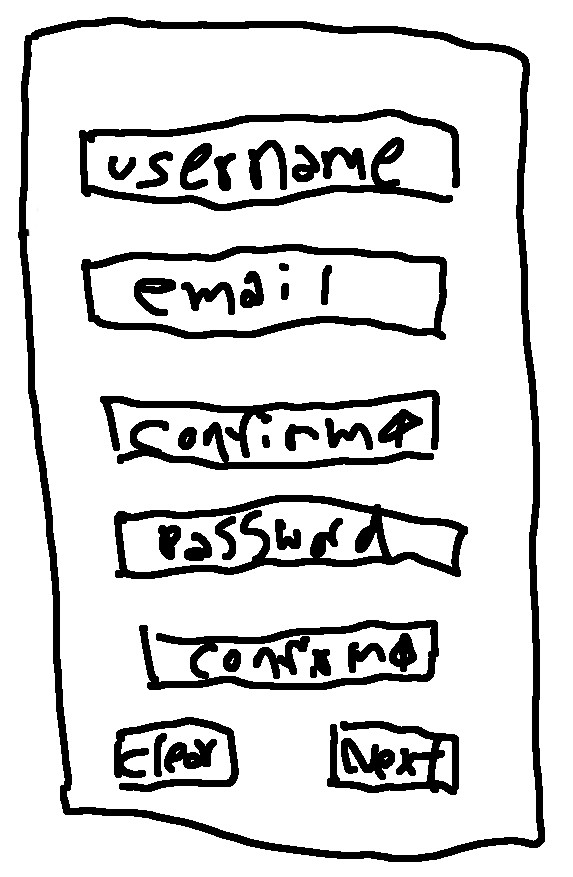 username
email
confirm ↑
password
confirm ↑
clear
Next